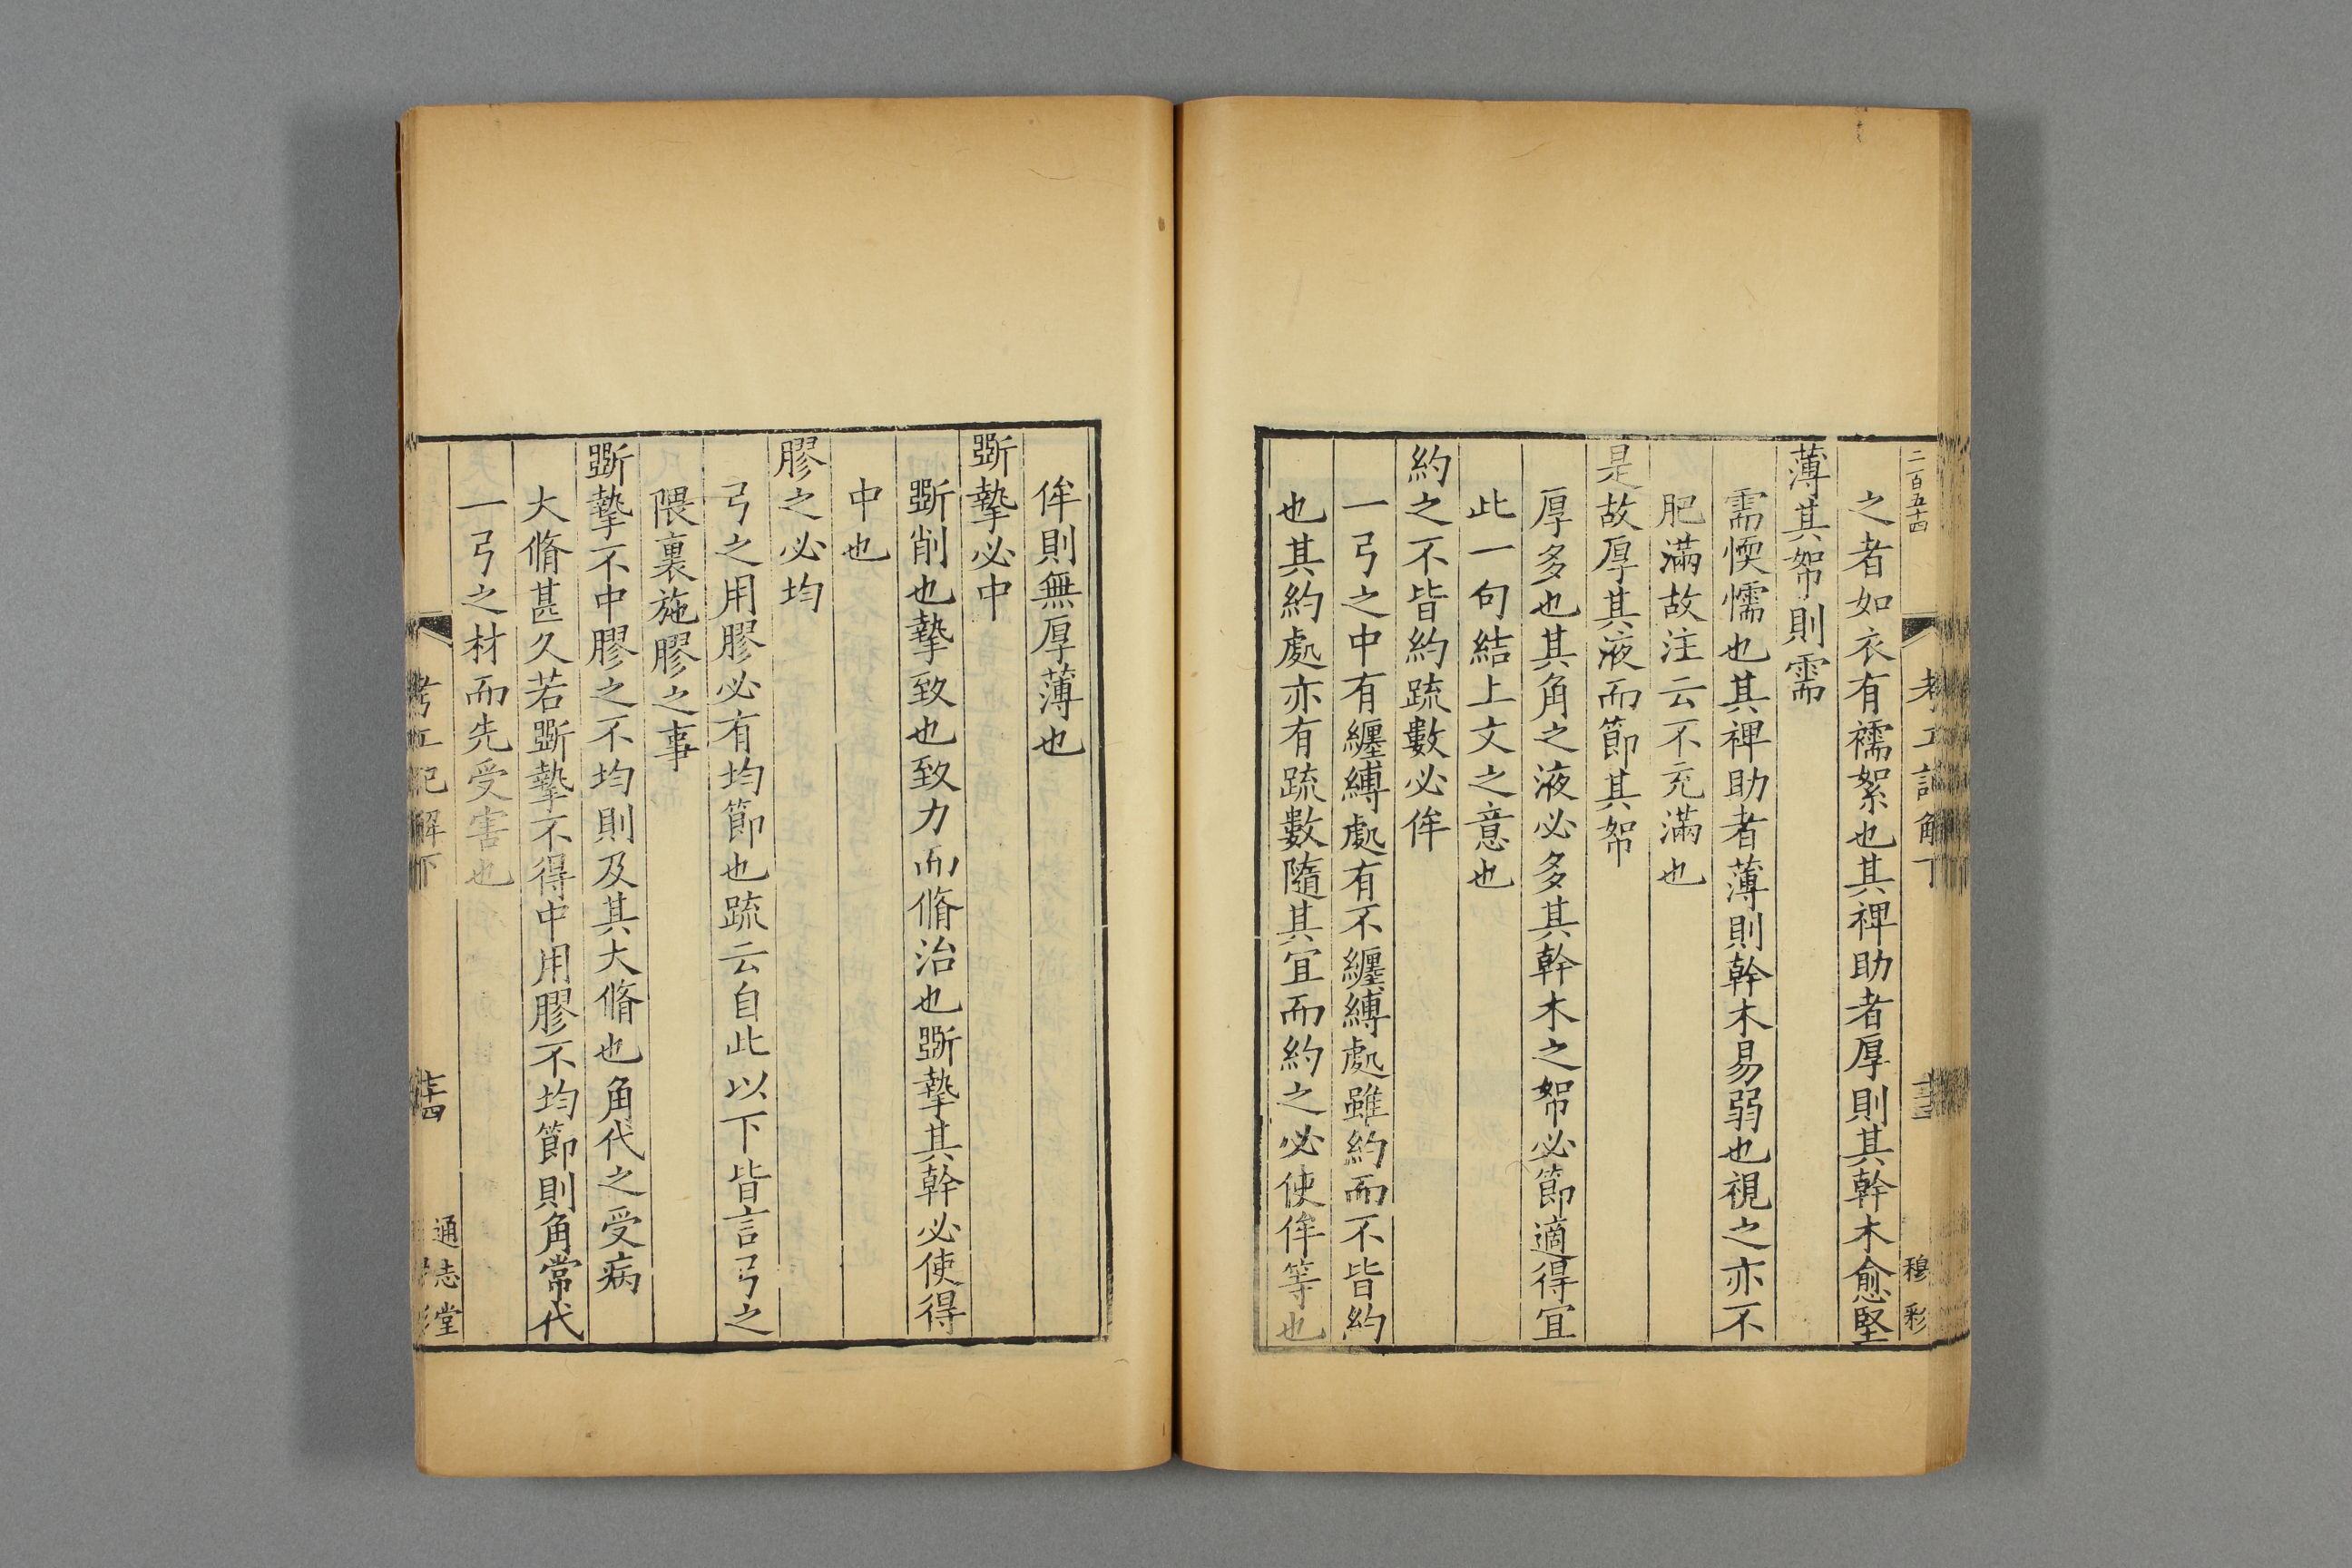 二百五十四
考工記解下
穆彩
之者如衣有襦絮也其裨助者厚則其幹木愈堅
薄其帤則需
需愞懦也其裨助者薄則幹木易弱也視之亦不
肥滿故注云不充滿也
是故厚其液而節其帤
厚多也其角之液必多其幹木之帤必節適得宜
此一句結上文之意也
約之不皆約疏數必侔
一弓之中有纏縛處有不纏縛處雖約而不皆約
也其約處亦有疏數隨其宜而約之必使侔等也
侔則無厚薄也
斲摯必中
斲削也摯致也致力而脩治也斲摯其幹必使得
中也
膠之必均
弓之用膠必有均節也疏云自此以下皆言弓之
隈裏施膠之事
斲摯不中膠之不均則及其大脩也角代之受病
大脩甚久若斲摯不得中用膠不均節則角常代
一弓之材而先受害也
考工記解下
通志堂